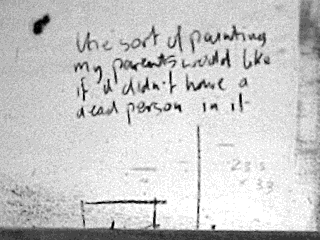 the sort of painting
my parents would like
if it didn't have a
dead person in it
233
x 33